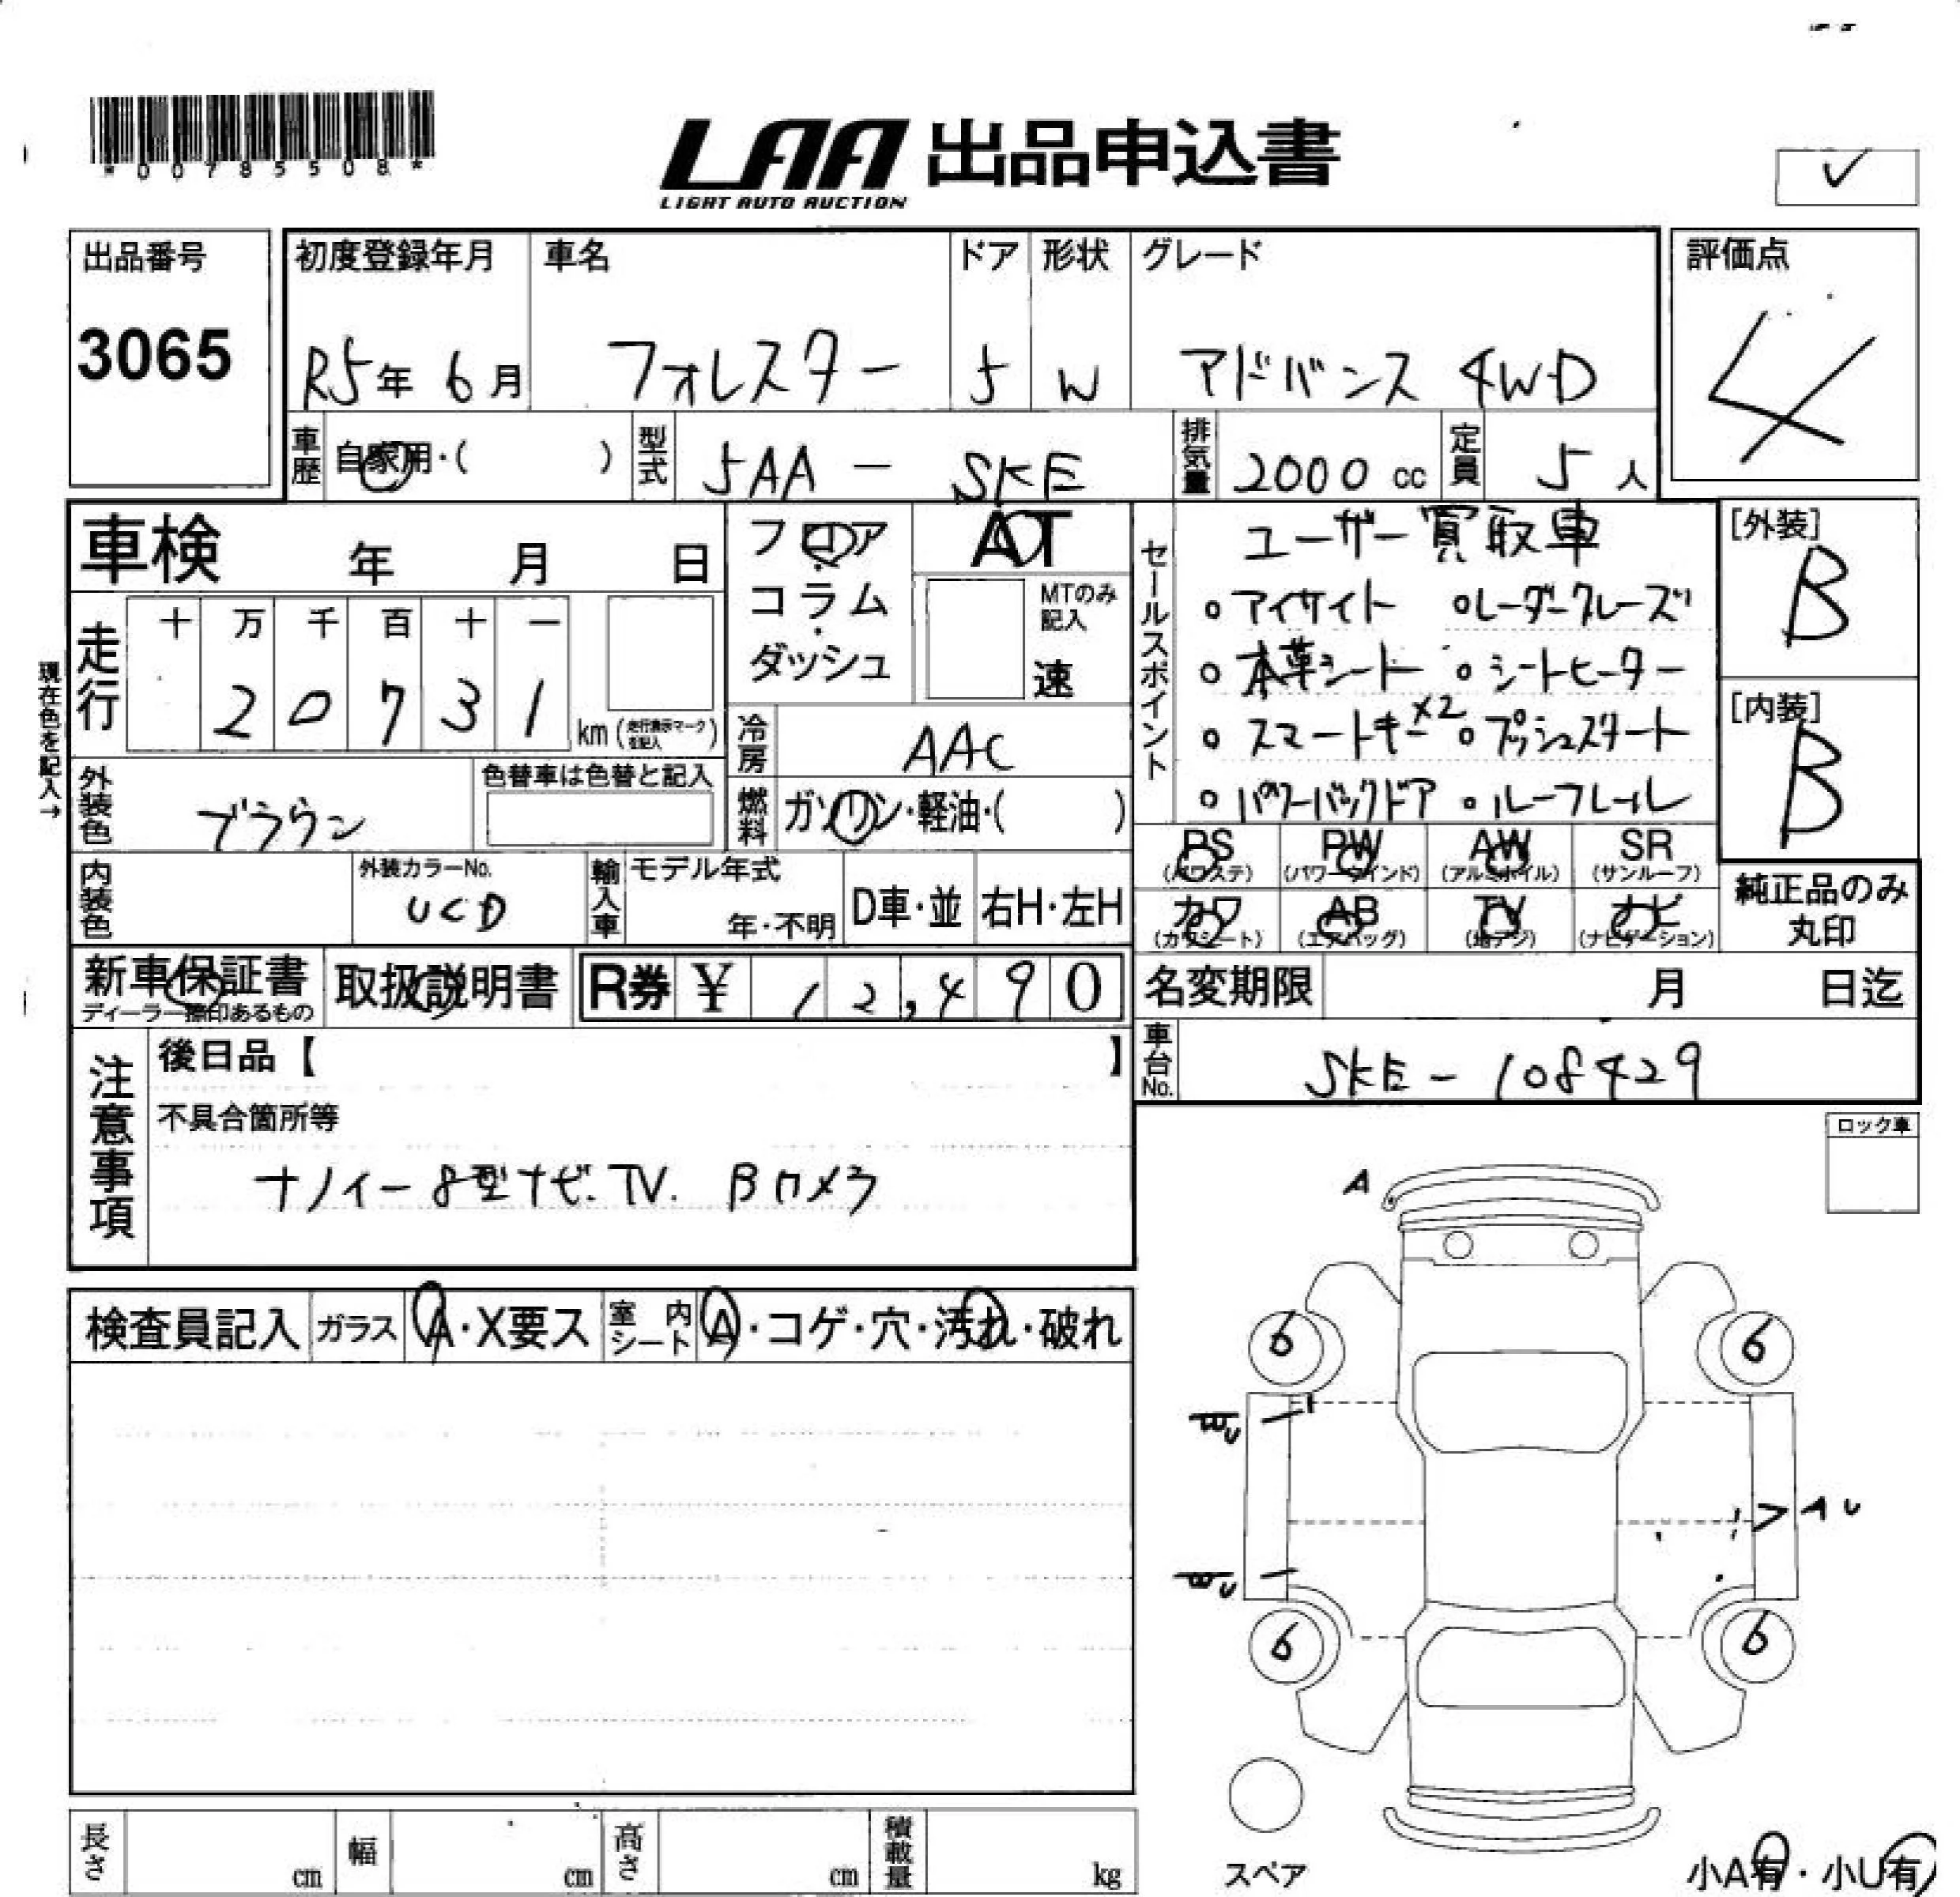 *00785508*
LAA 出品申込書
LIGHT AUTO AUCTION
✓
出品番号
3065
初度登録年月
R5年 6月
車名
フォレスター
ドア
5
形状
W
グレード
アドバンス 4WD
評価点
4
車歴
自家用・( )
型式
5AA - SKE
排気量
2000 cc
定員
5 人
車検 年 月 日
フロア・コラム・ダッシュ
AT
MTのみ記入
速
セールスポイント
ユーザー買取車
○アイサイト ○レーダークルーズ
○本革シート ○シートヒーター
○スマートキー×2 ○プッシュスタート
○パワーバックドア ○ルーフレール
[外装]
B
[内装]
B
現在色を記入→
走行
十 万 千 百 十 一
2 0 7 3 1
km(走行表示マークを記入)
冷房
AAC
外装色
ブラウン
色替車は色替と記入
燃料
ガソリン・軽油・( )
PS (パワステ)
PW (パワーウインド)
AW (アルミホイル)
SR (サンルーフ)
カワ (カワシート)
AB (エアバッグ)
TV (地デジ)
ナビ (ナビゲーション)
純正品のみ丸印
内装色
外装カラーNo.
UCD
輸入車
モデル年式
年・不明
D車・並
右H・左H
新車保証書
ディーラー捺印あるもの
取扱説明書
R券 ¥ 12,490
名変期限 月 日迄
車台No.
SKE - 108429
注意事項
後日品【 】
不具合箇所等
ナノイー 8型ナビ. TV. Bカメラ
ロック車
検査員記入
ガラス
A・X要ス
室内シート
A・コゲ・穴・汚れ・破れ
A
6
6
AU
6
6
スペア
小A有・小U有
長さ cm
幅 cm
高さ cm
積載量 kg